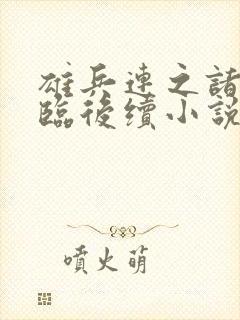 雄兵連之諸
臨後續小說
噴火萌